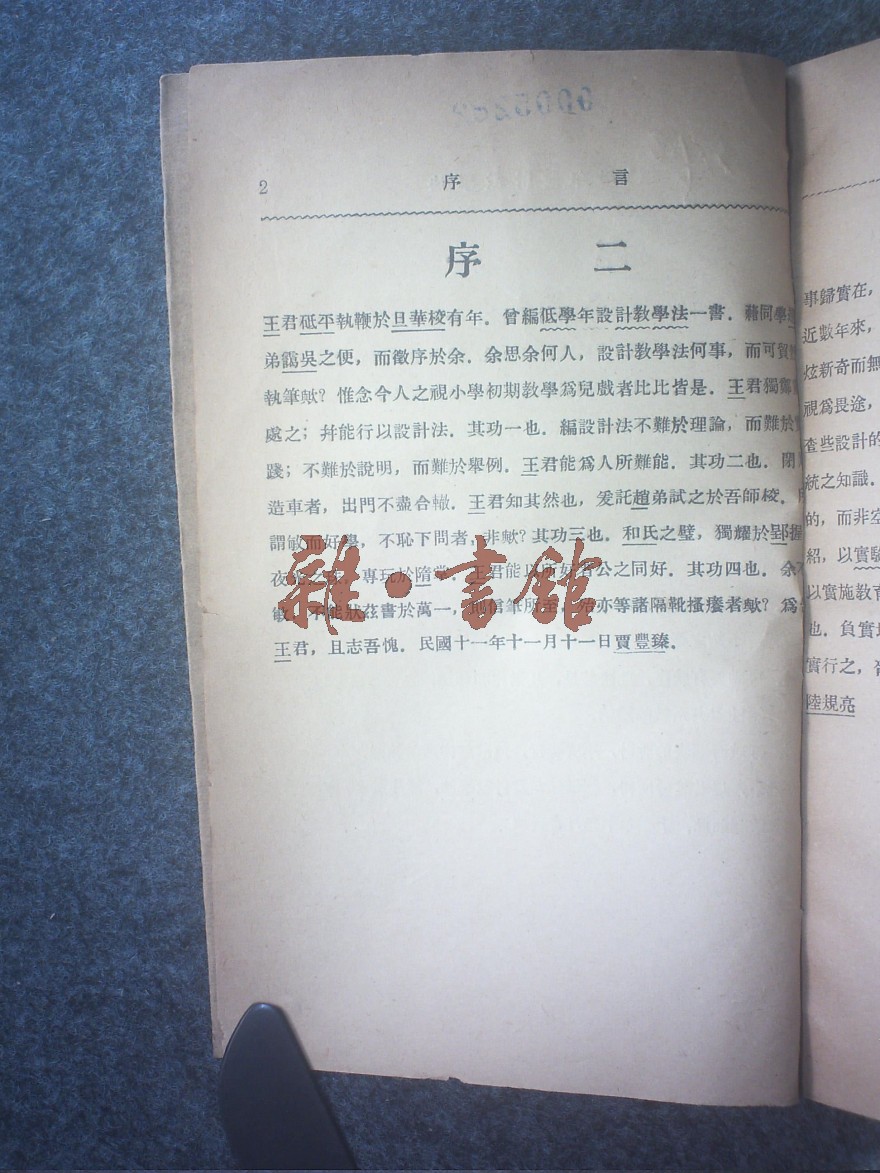 2 序 言
序 二
王君砥平執鞭於旦華校有年．曾編低學年設計教學法一書．藉同學
弟靄吳之便，而徵序於余．余思余何人，設計教學法何事，而可貿
執筆歟？惟念今人之視小學初期教學爲兒戲者比比皆是．王君獨鄭
處之；幷能行以設計法．其功一也．編設計法不難於理論，而難於
踐；不難於說明，而難於舉例．王君能爲人所難能．其功二也．閉
造車者，出門不盡合轍．王君知其然也，爰託趙弟試之於吾師校．
謂敏而好學，不恥下問者，非歟？其功三也．和氏之璧，獨耀於郢握
夜光之珠，專玩於隋掌．王君能以所好者公之同好．其功四也．余不
敏，不能狀茲書於萬一，則信筆所至，殆亦等諸隔靴搔癢者歟？爲
王君，且志吾愧．民國十一年十一月十一日賈豐臻．
事歸實在，
近數年來，
炫新奇而無
視爲畏途，
查些設計的
統之知識．
的，而非空
紹，以實驗
以實施教育
也．負實
實行之，
陸規亮
雜·書館